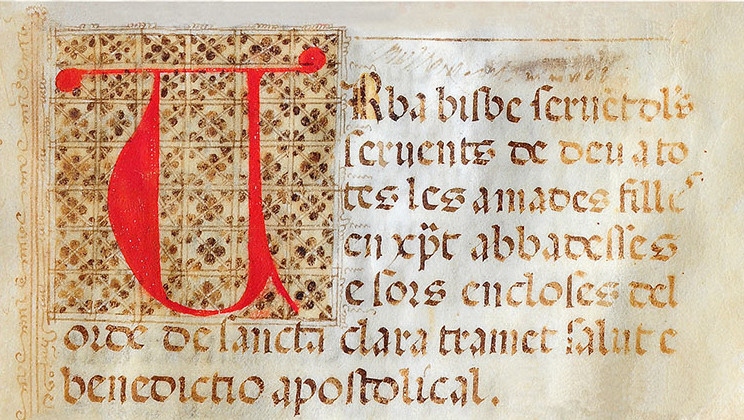 URba bisbe seruẽt dl's
seruents de deu a to
tes les amades fille's
en xp̃t abbadesses
e sors encloses del
orde de sancta clara tramet salut e
benedictio apostolical.